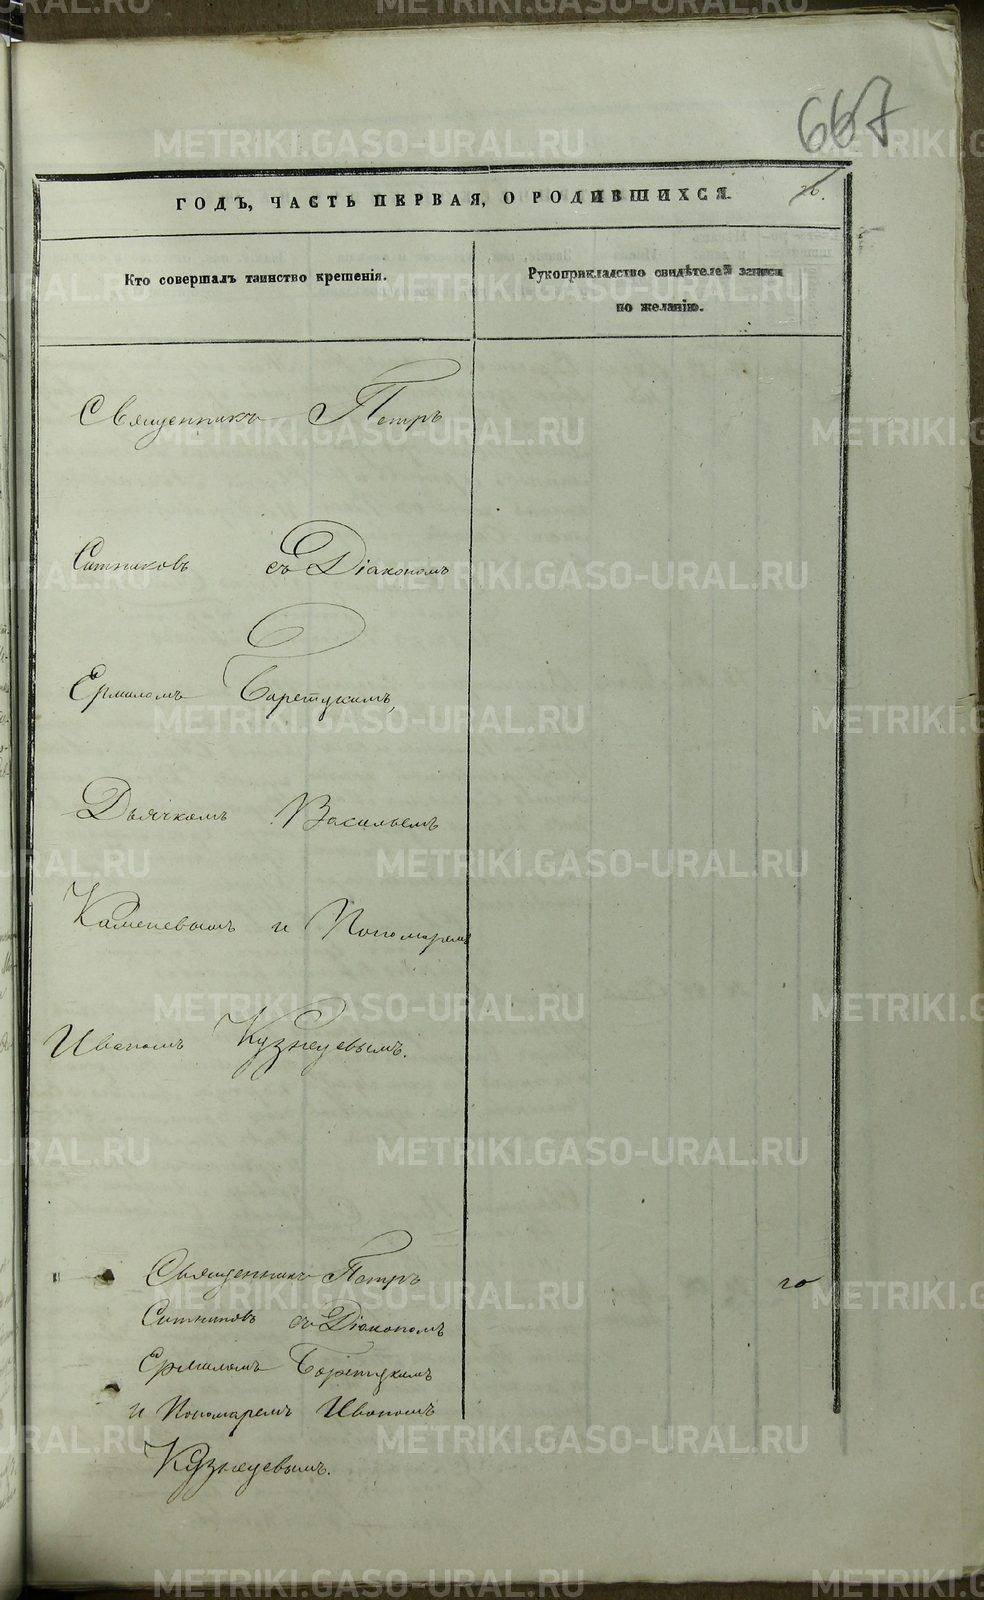 667
26.
ГОДЪ, ЧАСТЬ ПЕРВАЯ, О РОДИВШИХСЯ.
Кто совершалъ таинство крещенія.
Рукоприкладство свидѣтелей записи
по желанію.
Священникъ Петръ
Ситниковъ съ Діакономъ
Ермиломъ Борецкимъ,
Дьячкомъ Васильемъ
Каменевымъ и Пономаремъ
Иваномъ Кузнецевымъ.
Священникъ Петръ
Ситниковъ съ Діакономъ
Ермиломъ Борецкимъ
и Пономаремъ Иваномъ
Кузнецевымъ.
METRIKI.GASO-URAL.RU